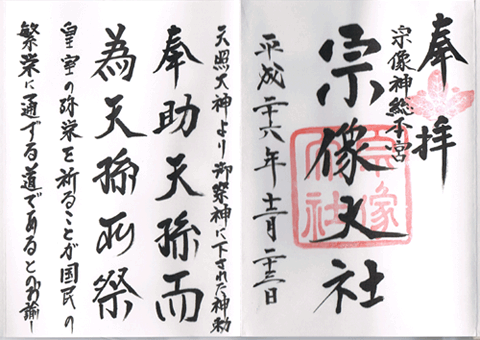 奉拝
宗像神総本宮
宗像大社
平成二十六年十二月二十三日
天照大神より御祭神に下された神勅
奉助天孫而
為天孫所祭
皇室の弥栄を祈ることが国民の
繁栄に通ずる道であるとのお諭し